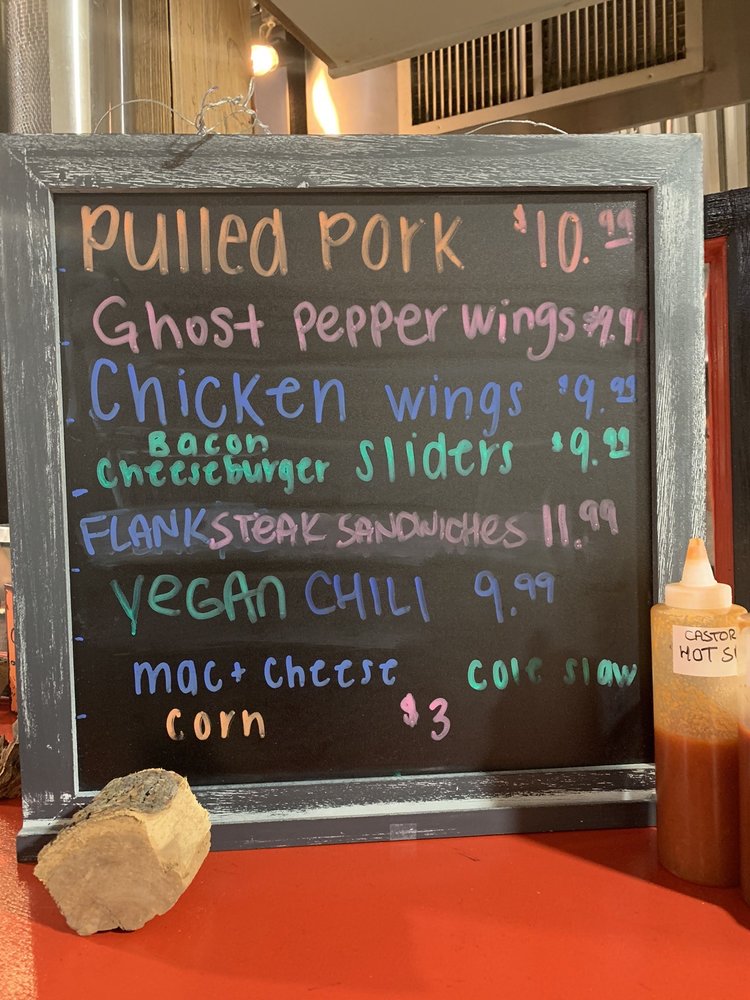 Pulled Pork $10.99
Ghost Pepper wings $9.99
Chicken wings $9.99
Bacon
Cheeseburger Sliders $9.99
FLANK STEAK SANDWICHES 11.99
VEGAN CHILI 9.99
mac + cheese cole slaw
corn $3
CASTOR
HOT